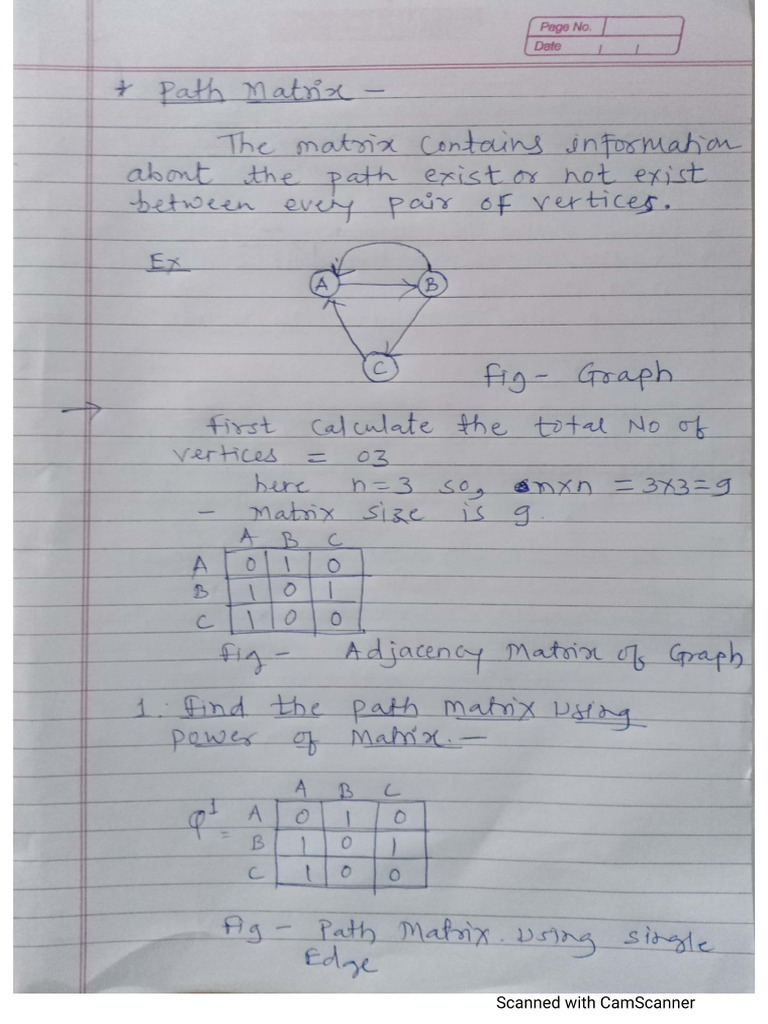 Page No.
Date
* Path Matrix -
The matrix contains information
about the path exist or not exist
between every pair of vertices.
Ex
A B
C
fig - Graph
→
first calculate the total No of
vertices = 03
here n=3 so, n×n = 3×3=9
- Matrix size is 9.
A B C
A 0 1 0
B 1 0 1
C 1 0 0
fig - Adjacency Matrix of Graph
1. find the path matrix using
power of Matrix. -
A B C
A 0 1 0
B 1 0 1
C 1 0 0
fig - Path Matrix. using single
Edge
Scanned with CamScanner